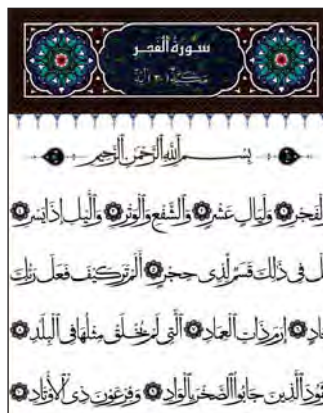 سورة الفجر
مكية ٣٠ آية
بسم الله الرحمن الرحيم
لفجر ١ وليال عشر ٢ والشفع والوتر ٣ واليل إذا يسر ٤
ل فى ذلك قسم لذى حجر ٥ ألم تر كيف فعل ربك
عاد ٦ إرم ذات العماد ٧ التى لم يخلق مثلها فى البلد ٨
ثمود الذين جابوا الصخر بالواد ٩ وفرعون ذى الأوتاد ١٠